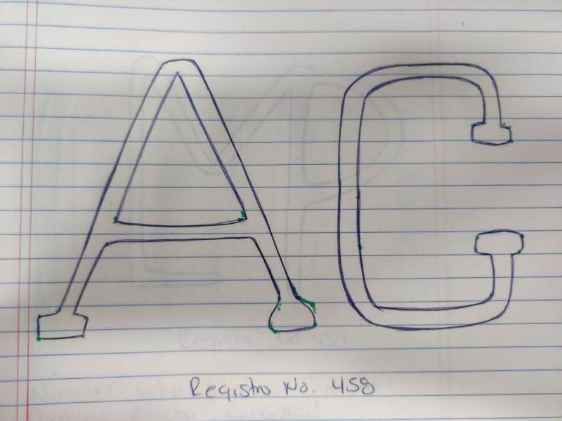 AC
Registro No. 458